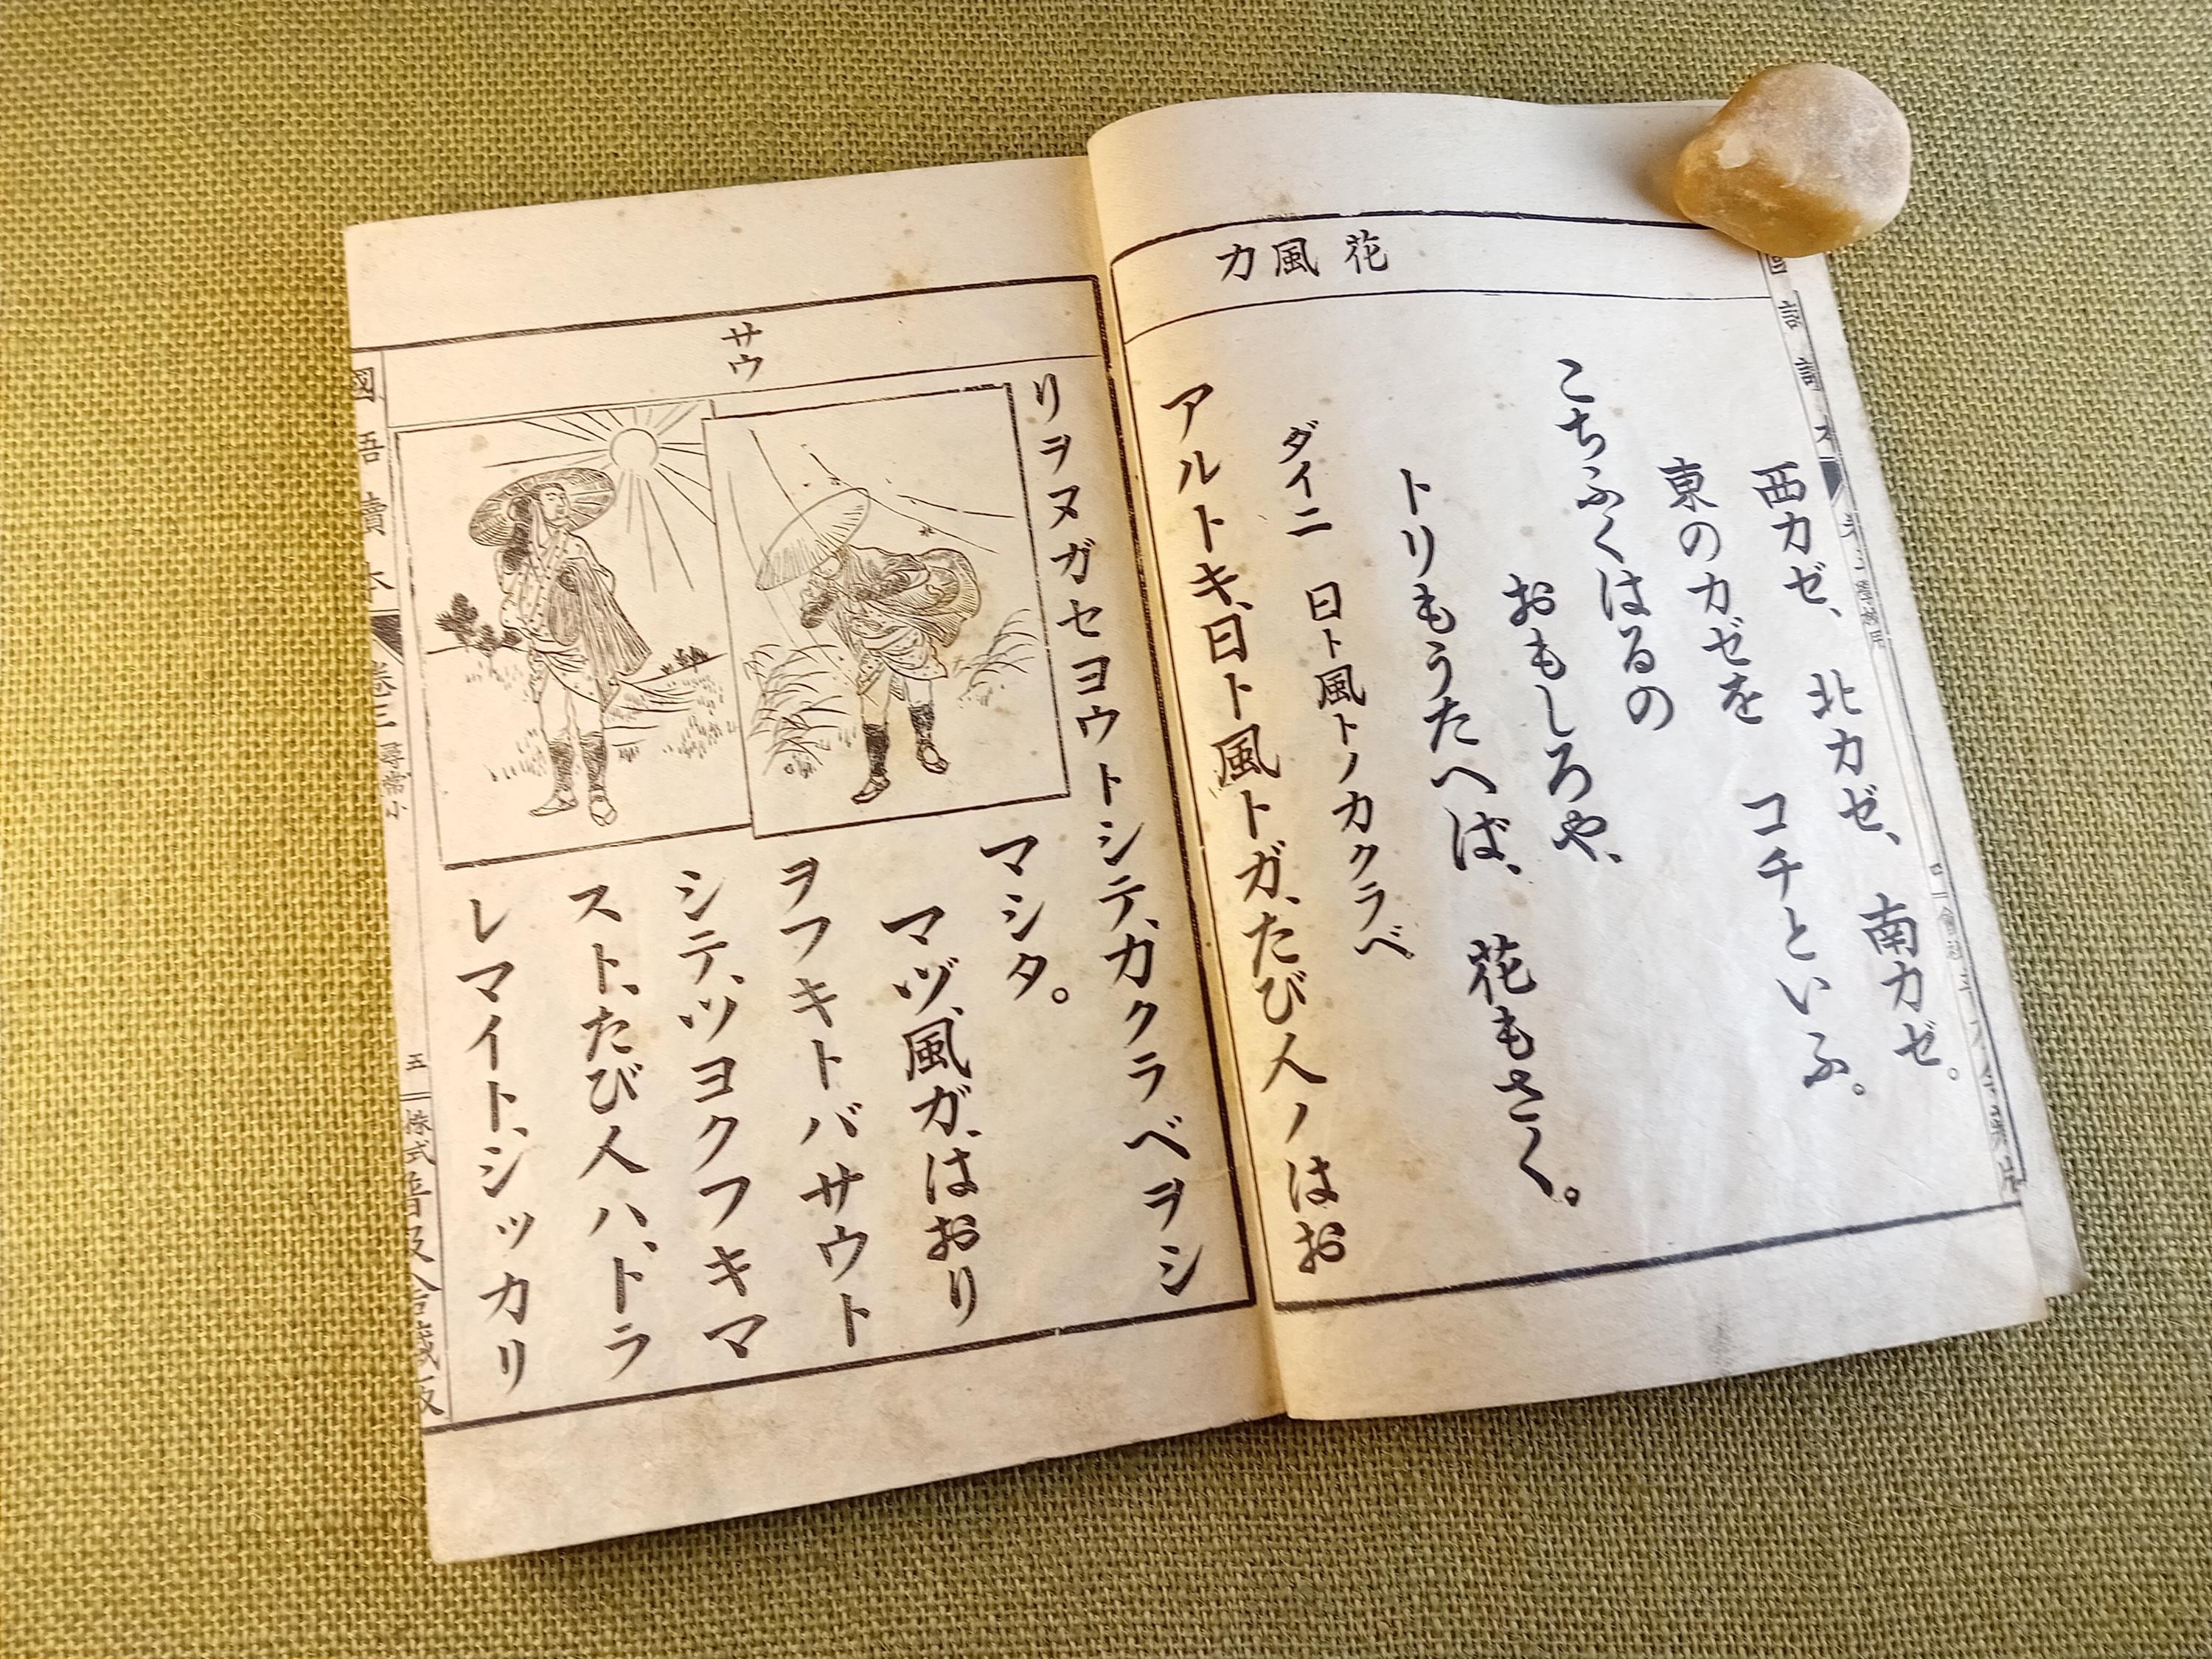 花
風力
西カゼ、北カゼ、南カゼ。
東のカゼを コチといふ。
こちふくはるの
おもしろや、
トリもうたへば、花もさく。
ダイニ 日ト風トノカクラベ
アルトキ、日ト風トガ、たび人ノはお
サウ
リヲヌガセヨウトシテ、カクラベヲシ
マシタ。
マヅ、風ガ、はおり
ヲフキトバサウト
シテ、ツヨクフキマ
スト、たび人ハ、トラ
レマイト、シッカリ
國語讀本 卷三 尋常小
五 株式